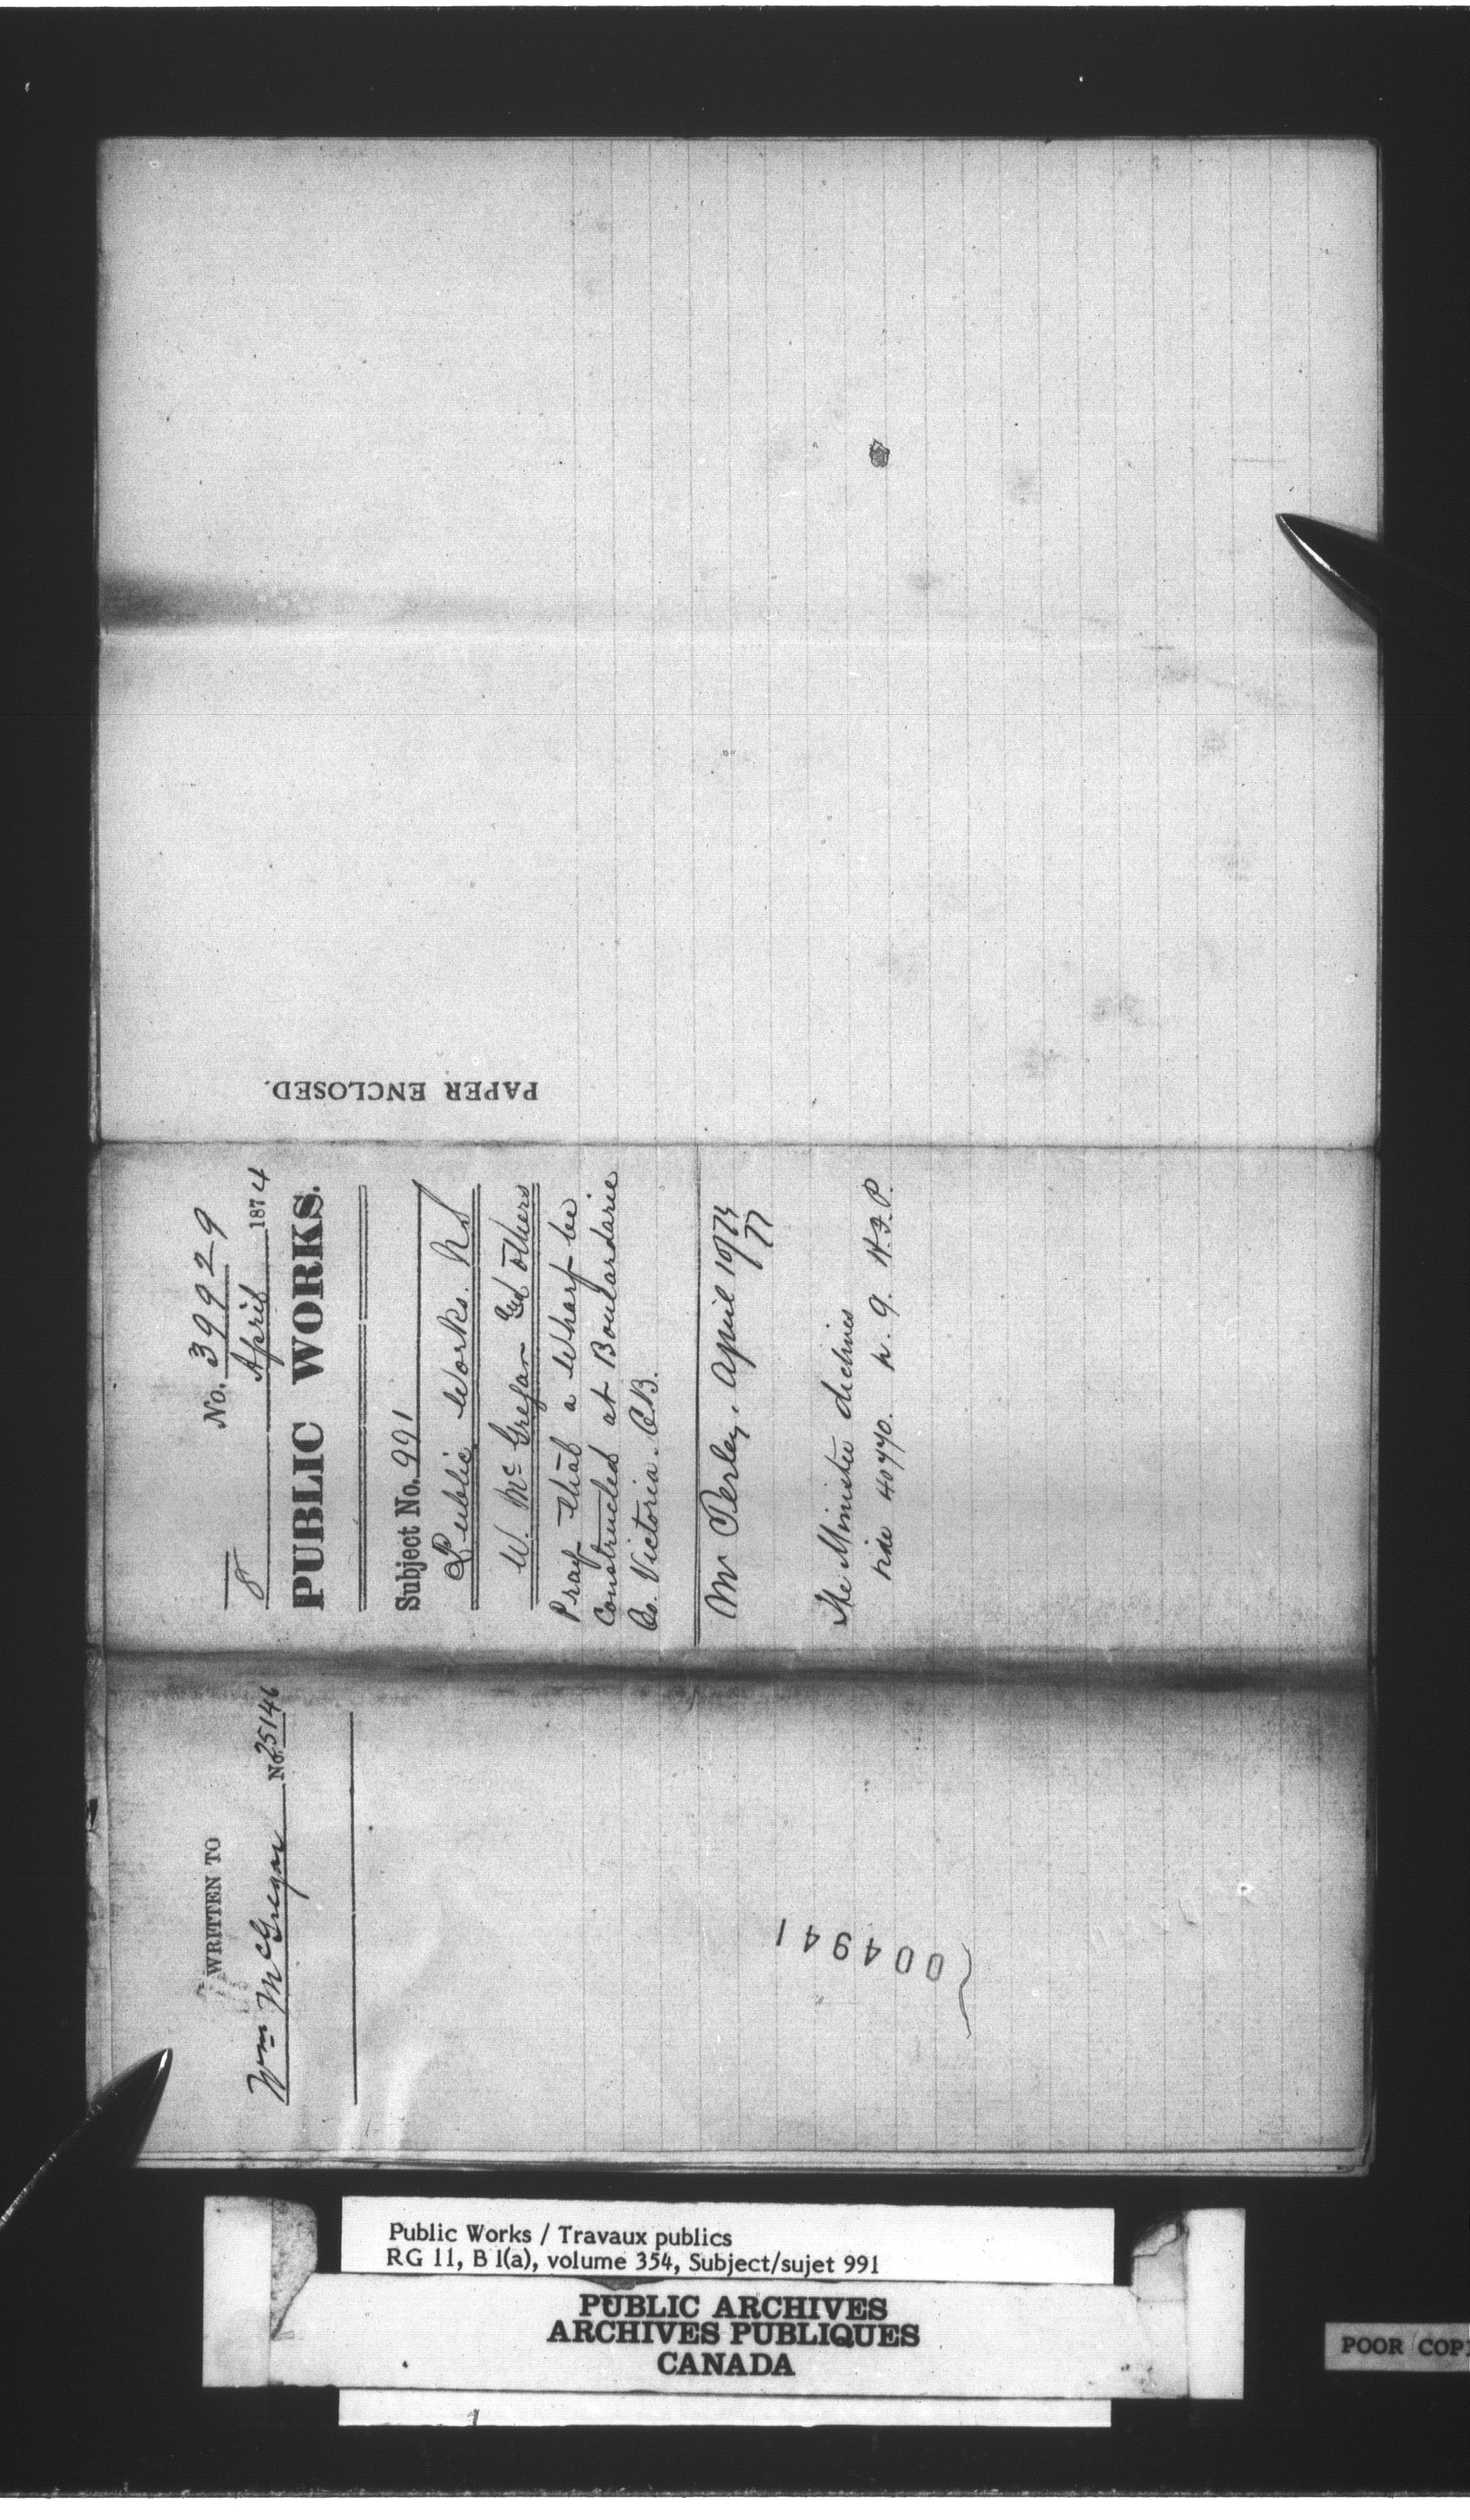 PAPER ENCLOSED.
No. 39929
8 April 1874
PUBLIC WORKS.
Subject No. 991
Public Works. NS
W. McGregor and others
Pray that a Wharf be
Constructed at Boulardarie
Co. Victoria. C.B.
Mr Perley, April 10/73
77
The Minister declines
vide 40770. H.F.P.
WRITTEN TO
Wm McGregor No. 25146
004941
Public Works / Travaux publics
RG 11, B 1(a), volume 354, Subject/sujet 991
PUBLIC ARCHIVES
ARCHIVES PUBLIQUES
CANADA
POOR COP